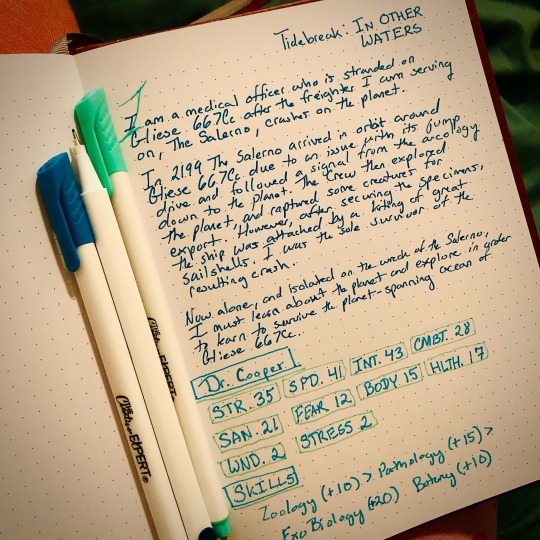 Tidebreak: IN OTHER
WATERS
I am a medical officer who is stranded on
Gliese 667Cc after the freighter I am serving
on, The Salerno, crashes on the planet.
In 2199 The Salerno arrived in orbit around
Gliese 667Cc due to an issue with its jump
drive and followed a signal from the arcology
down to the planet. The Crew then explored
the planet, and captured some creatures for
export. However, after securing the specimens,
the ship was attacked by a kiting of great
sailshells. I was the sole survivor of the
resulting crash.
Now alone, and isolated on the wreck of the Salerno,
I must learn about the planet and explore in order
to learn to survive the planet-spanning ocean of
Gliese 667Cc.
Dr. Cooper
STR. 35 SPD. 41 INT. 43 CMBT. 28
SAN. 21 FEAR 12 BODY 15 HLTH. 17
WND. 2 STRESS 2
SKILLS
Zoology (+10) > Pathology (+15) >
Exo Biology (+20) Botany (+10)
EXPERT
EXPERT